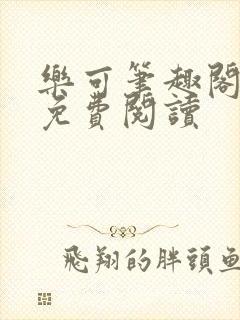 樂可筆趣閣
免費閱讀
飛翔的胖頭魚